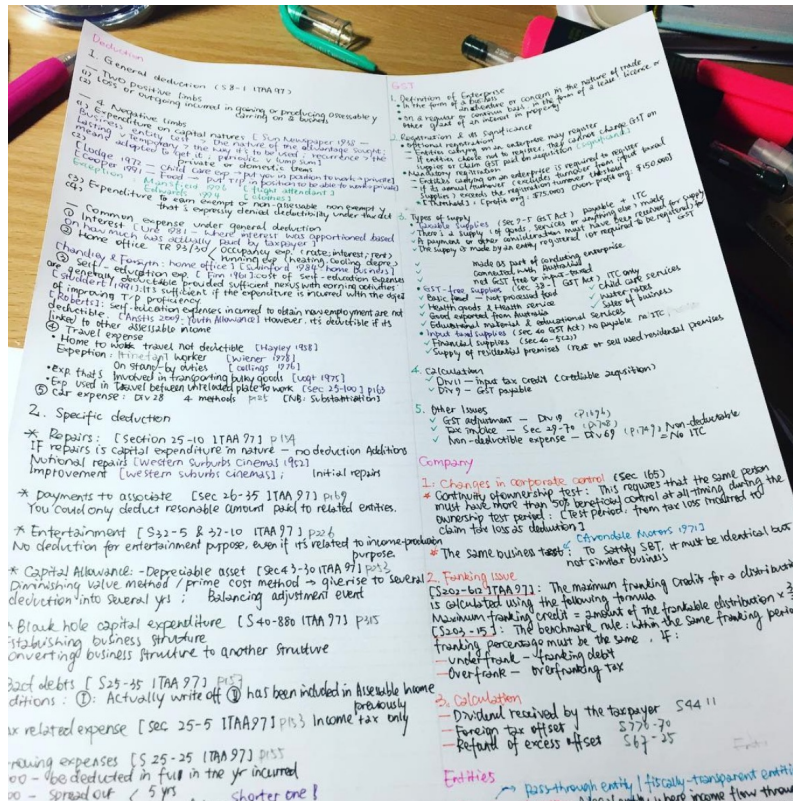 Deduction
1. General deduction (S8-1 ITAA 97)
— Two Positive limbs
(1) Loss or outgoing incurred in gaining or producing assessable y
(2) carrying on a business
— 4 Negative limbs
(1) Expenditure on capital natures [Sun Newspaper 1938 —
Business entity test
lasting v temporary > the nature of the advantage sought;
means adopted to get it; periodic v lump sum] recurrence > the
(2) private or domestic items
[Lodge 1972 —
[Cooper 1991 — Food — put T/P in position to be able to work = private]
Exception: Mansfield 1996 [flight attendant]
Edwards 1994 [clothes]
(3) Expenditure to earn exempt or non-assessable non exempt y
(4) that's expressly denied deductibility under the act
— Common expense under general deduction
① Interest [Ure 1981 — where interest was apportioned based
on how much was actually paid by taxpayer]
② Home office TR 93/30 < Occupancy exp. (rate; interest; rent)
Running exp (heating, cooling, depre)
Chandley & Forsyth: home office] [Swinford 1984 home business]
③ Self-education exp. [Finn 1961: cost of self-education expenses
are generally deductible provided sufficient nexus with earning activities
[Studdert 1991]: It's sufficient if the expenditure is incurred with the object
of improving T/P proficiency.
[Roberts]: self-education expenses incurred to obtain new employment are not
deductible. [Anstis 2009: Youth Allowance] However, it's deductible if its
linked to other assessable income
④ Travel expense
• Home to work travel not deductible [Hayley 1958]
Exception: Itinerant worker [Wiener 1978]
On stand-by duties [collings 1976]
• Exp that's Involved in transporting bulky goods [Vogt 1975]
• Exp used in Travel between unrelated place to work [sec 25-100] p163
⑤ Car expense: Div 28 4 methods p125 [NB: Substantiation]
2. Specific deduction
* Repairs: [Section 25-10 ITAA 97] p154
IF repairs is capital expenditure in nature — no deduction Additions
Notional repairs [Western Surburbs Cinemas 1952]
Improvement [western suburbs cinemas]; Initial repairs
* Payments to associate [sec 26-35 ITAA 97] p169
You could only deduct resonable amount paid to related entities.
* Entertainment [S32-5 & 32-10 ITAA 97] p226
No deduction for entertainment purpose, even if it's related to income-production
purpose.
* Capital Allowance: - Depreciable asset [Sec 43-30 ITAA 97] p253
Diminishing value method / prime cost method → give rise to several
deduction into several yrs; Balancing adjustment event
Black hole capital expenditure [S40-880 ITAA 97] p315
Establishing business structure
Converting business structure to another structure
Bad debts [S25-35 ITAA 97] p157
ditions: ①: Actually write off ② has been included in Assessable Income
previously
x related expense [sec 25-5 ITAA 97] p153 Income tax only
rowing expenses [S 25-25 ITAA 97] p155
00 — be deducted in full in the yr incurred
00 — spread out < 5 yrs
shorter one }
GST
1. Definition of Enterprise
• In the form of a business
• an adventure or concern in the nature of trade
• on a regular or continuous basis, in the form of a lease, licence or
other grant of an interest in property
2. Registration & its significance
• Optional registration
— Entities carrying on an enterprise may register
— If entities choose not to register, they cannot charge GST on
supplies or claim GST paid on aquisition (significance)
• Mandatory registration
— Entities carrying on an enterprise is required to register
if its annual turnover (excludes turnover from input taxed
supplies) exceeds the registration turnover threshold
— Thresholds: (Profit org: $75,000) (Non profit org: $150,000)
3. Types of supply
• Taxable supplies (Sec 9-5 GST Act) payable + ITC
There is a supply (of goods, services or anything else) made for supply
A payment or other consideration must have been received
The supply is made by an entity registered (or required to be registered) for
GST
made as part of conducting an enterprise.
connected with Australia
not GST free or input-taxed
• GST-free supplies (Sec 38- GST Act) ITC only
✓ Basic food — Not processed food
✓ Child care services
✓ Health goods & Health service
✓ Water rates
✓ Good exported from Australia
✓ Sales of business
✓ Educational material & educational services
• Input taxed supplies (Sec 40 GST Act) No payable no ITC
✓ Financial supplies (Sec 40-5(1))
✓ Supply of residential premises (Rent or sell used residential premises
4. Calculation
✓ Div 11 — input tax credit (creditable aquisition)
✓ Div 9 — GST payable
5. Other Issues
✓ GST adjustment — Div 19 (P1696)
✓ Tax invoice — Sec 29-70 (P1708)
✓ Non-deductible expense — Div 69 (P1747) Non-deductable
= No ITC
Company
1: Changes in corporate control (Sec 165)
* Continuity of ownership test: This requires that the same person
must have more than 50% beneficial control at all timing during the
ownership test period: [Test period, from tax loss incurred to
claim tax loss as deduction]
[Avondale Motors 1971]
* The same busines test: To satisfy SBT, it must be identical but
not similar business
2. Franking Issue
[S202-60 ITAA 97]: The maximum franking credit for a distributi
is calculated using the following formula
Maximum franking credit = amount of the frankable distribution × 3
[S203-15]: The benchmark rule: within the same franking perio
franking percentage must be the same. IF:
— underfrank — franking debt
— Overfrank — overfranking tax
3. Calculation
— Dividend received by the taxpayer S44 11
— Foreign tax offset S770-70
— Refund of excess offset S67-25
Entities
→ pass-through entity / fiscally-transparent entiti
where income flow throu